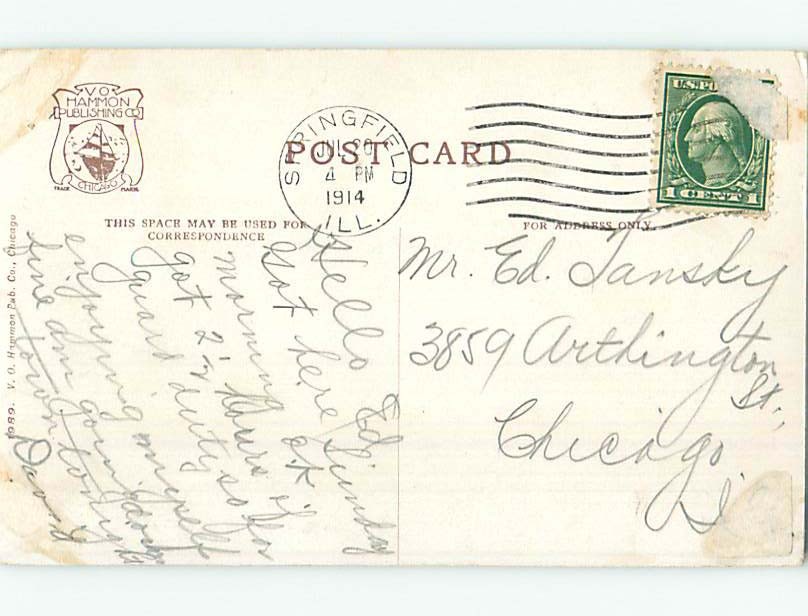 V.O.
HAMMON
PUBLISHING CO.
CHICAGO
TRADE MARK
POST CARD
SPRINGFIELD
JUL 20
4 PM
1914
ILL.
U.S. PO
1 CENT 1
THIS SPACE MAY BE USED FOR
CORRESPONDENCE
FOR ADDRESS ONLY.
1989. V. O. Hammon Pub. Co., Chicago
Hello Ed
Got here Sunday
morning at
got 2½ hours of
guard duty so far
enjoying myself
fine am going down
town tonight
David
Mr. Ed. Tansky
3859 Arthington
St.,
Chicago